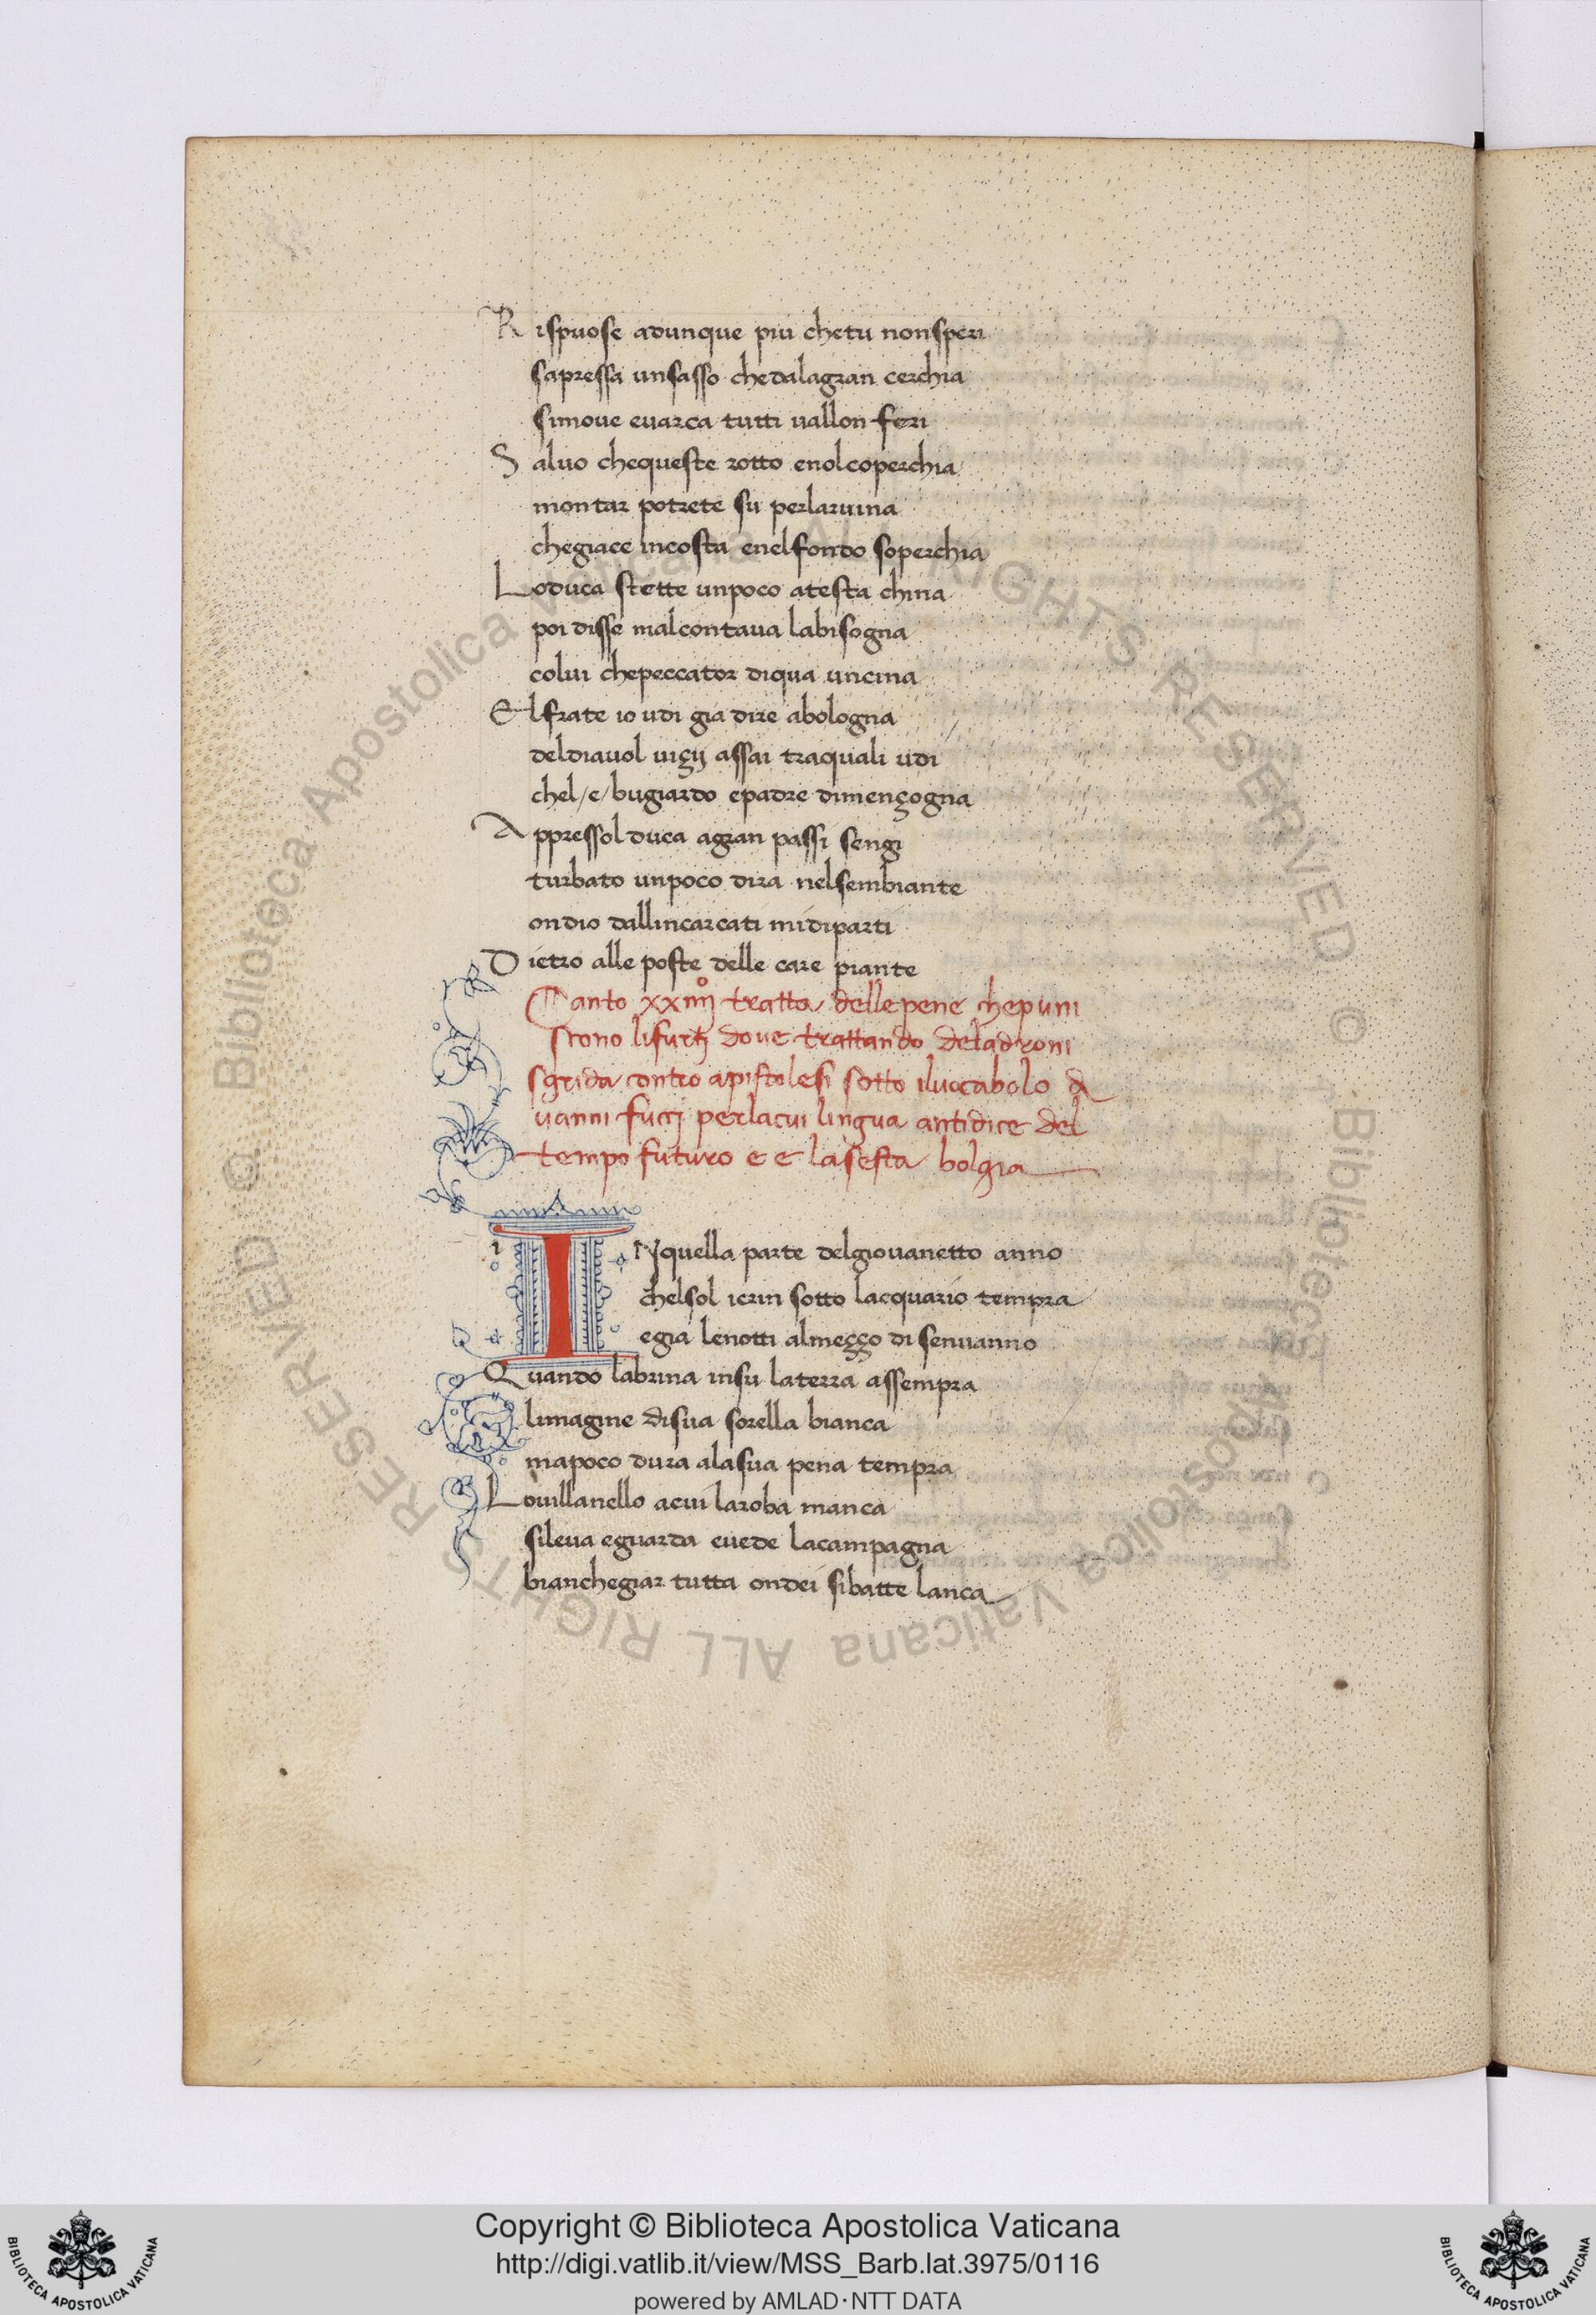 Rispuose adunque piu chetu nonsperi
sapressa unsasso chedalagran cerchia
simoue euarca tutti uallon feri
Saluo chequeste rotto enolcoperchia
montar potrete su perlaruina
chegiace incosta enelfondo soperchia
Loduca stette unpoco atesta china
poi disse malcontaua labisogna
colui chepeccator diqua uncina
Elfrate io udi gia dire abologna
deldiauol uigij assai traquali udi
chel/e/bugiardo epadre dimençogna
Appressol duca agran passi sengi
turbato unpoco dira nelsembiante
ondio dallincarcati midiparti
Dietro alle poste delle care piante
Canto xxiiijº tratta delle pene chepuni
scono lifurti doue trattando deladroni
sgrida contro apistolesi sotto iluocabolo di
uanni fucci perlacui lingua antidice del
tempo futuro e e lasesta bolgia
INquella parte delgiouanetto anno
chelsol icrin sotto lacquario tempra
egia lenotti almeççο di senuanno
Quando labrina insu laterra assempra
limagine disua sorella bianca
mapoco dura alasua pena tempra
Louillanello acui laroba manca
sileua eguarda euede lacampagna
bianchegiar tutta ondei sibatte lanca
© Biblioteca Apostolica Vaticana ALL RIGHTS RESERVED © Biblioteca Apostolica Vaticana ALL RIGHTS RESERVED
Copyright © Biblioteca Apostolica Vaticana
http://digi.vatlib.it/view/MSS_Barb.lat.3975/0116
powered by AMLAD·NTT DATA
BIBLIOTECA APOSTOLICA VATICANA
BIBLIOTECA APOSTOLICA VATICANA